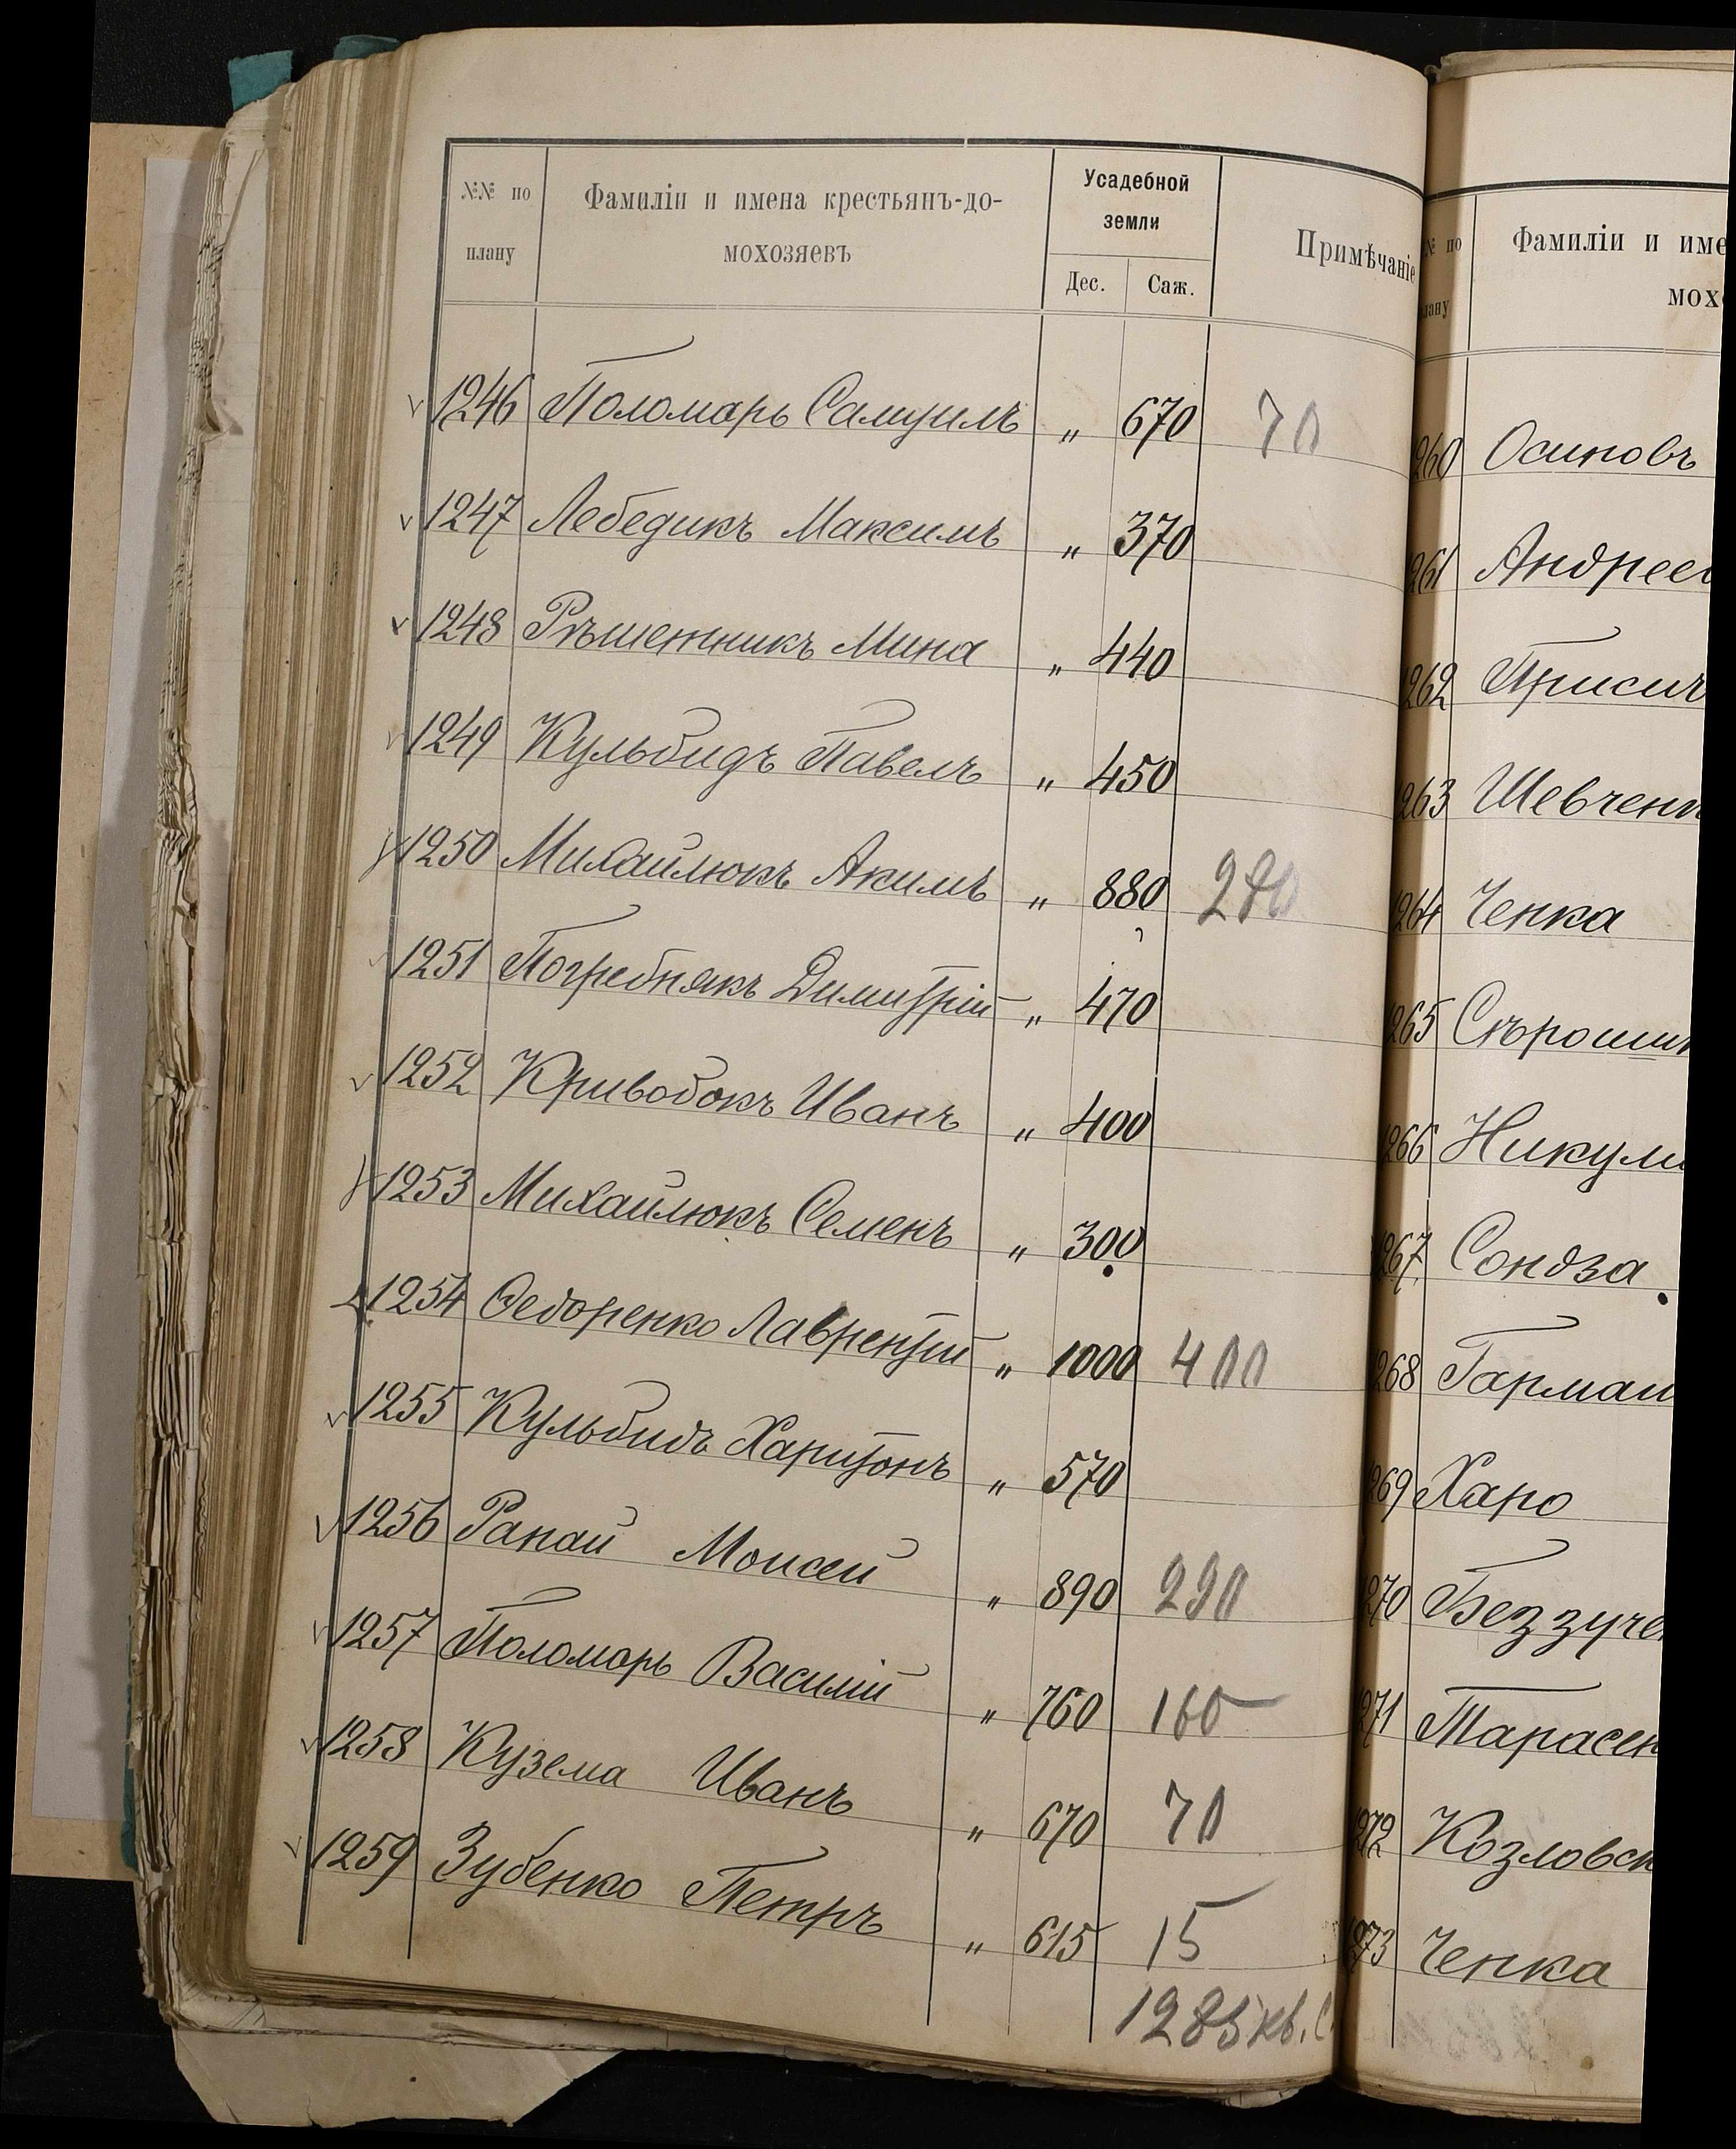 №№ по плану Фамиліи и имена крестьянъ-до-мохозяевъ Усадебной земли Дес. Саж. Примѣчаніе
1246 Поломарь Самуилъ „ 670 70
1247 Лебедикъ Максимъ „ 370
1248 Рѣшетникъ Мина „ 440
1249 Кульбидъ Павелъ „ 450
1250 Михайлюкъ Акимъ „ 880 280
1251 Погребнякъ Димитрій „ 470
1252 Кривобокъ Иванъ „ 400
1253 Михайлюкъ Семенъ „ 300
1254 Ѳедоренко Лаврентій „ 1000 400
1255 Кульбидъ Харитонъ „ 570
1256 Ранай Моисей „ 890 290
1257 Поломарь Василій „ 760 160
1258 Кузема Иванъ „ 670 70
1259 Зубенко Петръ „ 615 15
1285 кв. с.
№ по плану Фамиліи и име
мох
260 Осиповъ
261 Андреев
262 Присич
263 Шевченк
264 Ченка
265 Сѣрошт
266 Никули
267 Сондза
268 Гарман
269 Харо
270 Беззуче
271 Тарасен
272 Козловск
273 Ченка